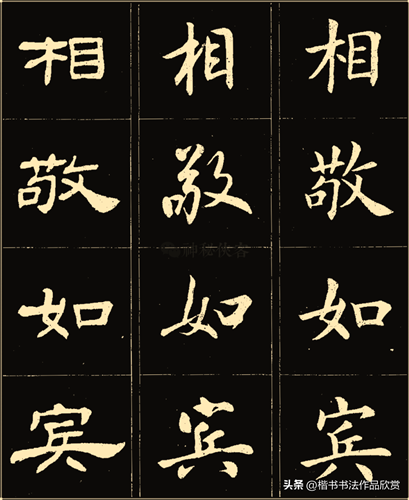 相敬如宾
相敬如宾
相敬如宾
神秘侠客
头条 @楷书书法作品欣赏